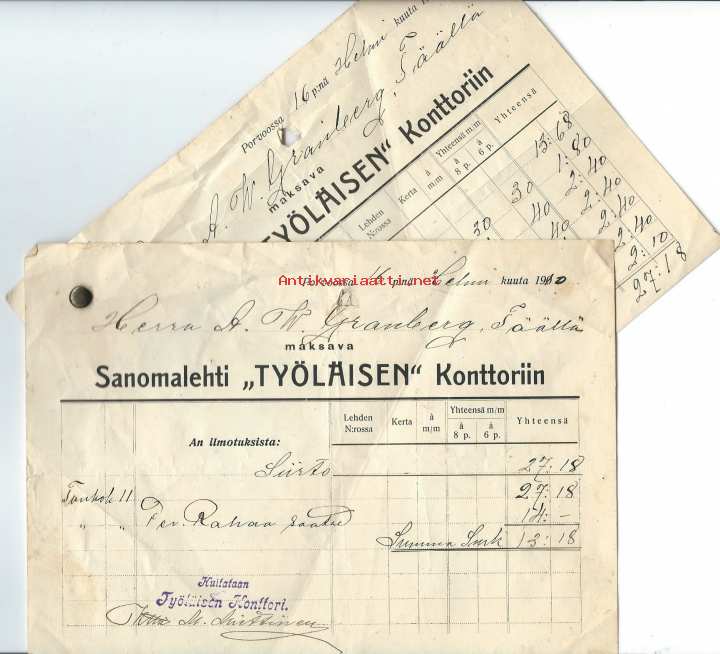 Porvoossa 16 p:nä Helmi kuuta 1
A. W. Granberg, Täällä
maksava
TYÖLÄISEN" Konttoriin
Lehden N:rossa Kerta à m/m Yhteensä m/m à 8 p. à 6 p. Yhteensä
13:68
30 1:80
30 40 2:40
40 2:40
2:40
2:40
2:10
27:18
Antikvariaatti.net
16 p:nä Helmi kuuta 1910
Herra A. W. Granberg, Täällä
maksava
Sanomalehti „TYÖLÄISEN" Konttoriin
An ilmotuksista: Lehden N:rossa Kerta à m/m Yhteensä m/m à 8 p. à 6 p. Yhteensä
Siirto 27:18
11 27:18
" " Rahaa saatu 14:-
Summa Smk 13:18
Kuitataan
Työläisen Konttori.
M.